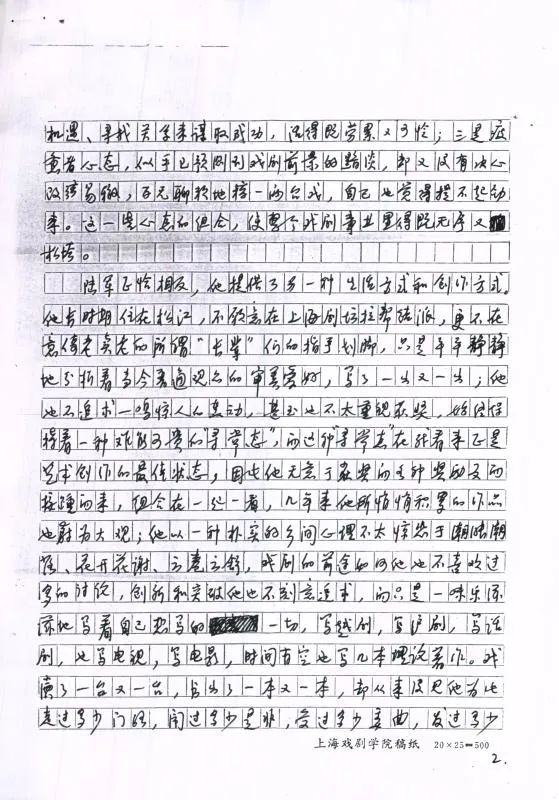 机遇、寻找关系来谋取成功，活得既劳累又可怜；三是疲
惫者心态，似乎已经闻到戏剧前景的黯淡，却又没有决心
改弦易辙，百无聊赖地挨一两台戏，自己也觉得提不起劲
来。这一些心态的组合，使整个戏剧事业显得既无序又
松垮。
陆军正恰相反，他提供了另一种生活方式和创作方式。
他长时期住在松江，不愿意在上海剧坛拉帮结派，更不在
意倚老卖老的所谓“长辈”们的指手划脚，只是平平静静
地分析着当今普通观众的审美爱好，写了一出又一出；他
也不追求一鸣惊人的轰动，甚至也不太重视获奖，始终保
持着一种难能可贵的“寻常态”，而这种“寻常态”在我看来正是
艺术创作的最佳状态，因此他无意于获奖的各种奖励反而
接踵而来，组合在一起一看，几年来他所悄悄积累的作品
也蔚为大观；他以一种朴实的乡间心理不太惊恐于潮结潮
落、花开花谢、云卷云舒，戏剧的前途如何他也不喜欢过
多的讨论，创新和突破他也不刻意追求，而只是一味乐滋
滋地写着自己想写的一切，写越剧，写沪剧，写话
剧，也写电视，写电影，时间有空也写几本理论著作。戏
演了一台又一台，书出了一本又一本，却从来没见他为此
走过多少门路，闹过多少是非，受过多少委曲，发过多少
上海戏剧学院稿纸 20×25=500
2.